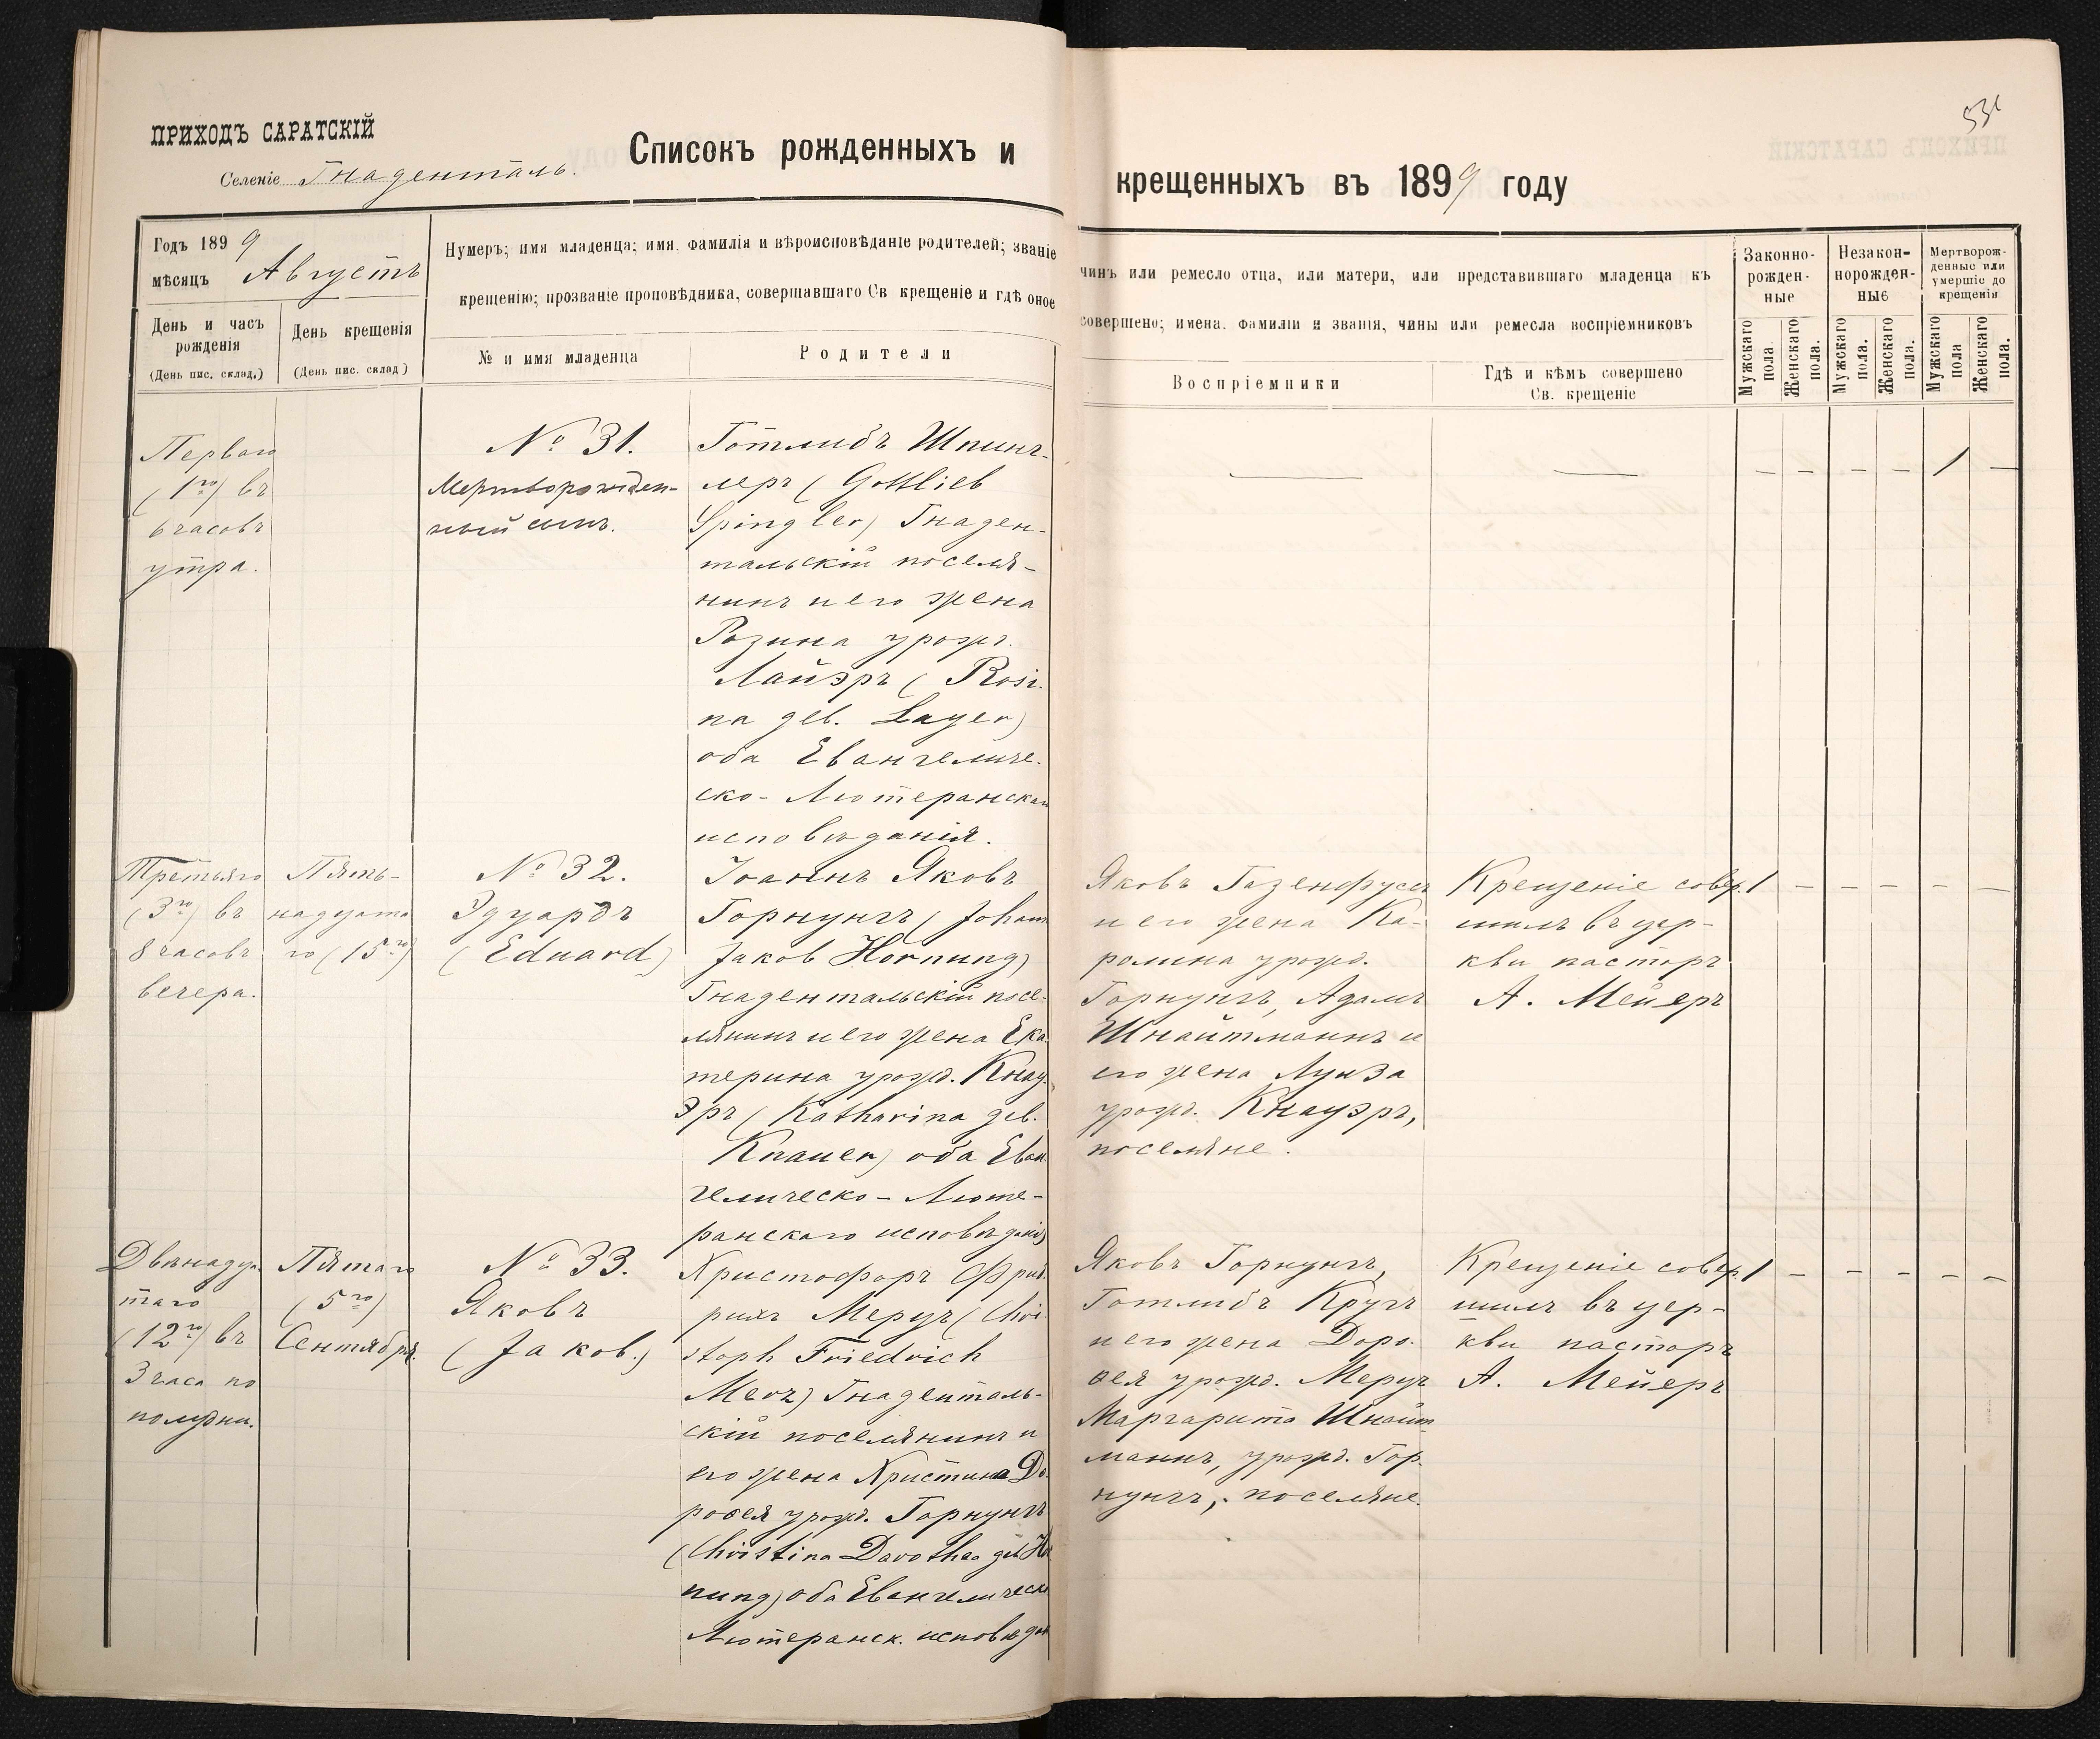 ПРИХОДЪ САРАТСКІЙ
Селеніе Гнаденталь.
Списокъ рожденныхъ и
крещенныхъ въ 1899 году
531
Годъ 1899
мѣсяцъ Августъ
День и часъ
рожденія
(День пис. склад.)
День крещенія
(День пис. склад)
Нумеръ; имя младенца; имя. фамилія и вѣроисповѣданіе родителей; званіе
крещенію; прозваніе проповѣдника, совершавшаго Св крещеніе и гдѣ оное
№ и имя младенца
Родители
чинъ или ремесло отца, или матери, или представившаго младенца къ
совершено; имена. фамиліи и званія, чины или ремесла воспріемниковъ
Воспріемники
Гдѣ и кѣмъ совершено
Св. крещеніе
Законно-
рожден-
ные
Незакон-
норожден-
ные
Мертворож-
денные или
умершіе до
крещенія
Мужскаго
пола
Женскаго
пола.
Мужскаго
пола.
Женскаго
пола.
Мужскаго
пола
Женскаго
пола.
Перваго
(1го) въ
6 часовъ
утра.
№ 31.
Мертворожден-
ный сынъ.
Готлибъ Шпинг-
леръ (Gottlieb
Spingler) Гнаден-
тальскій поселя-
нинъ и его жена
Розина урожд.
Лайэръ (Rosi-
na geb. Layer)
оба Евангеличе-
ско-Лютеранскаго
исповѣданія.
— — — — — — 1 —
Третьяго
(3го) въ
8 часовъ
вечера.
Пять-
надцата-
го (15го)
№ 32.
Эдуардъ
(Eduard)
Іоаннъ Яковъ
Горнунгъ (Johann
Jakob Hornung)
Гнадентальскій посе-
лянинъ и его жена Ека-
терина урожд. Кнау-
эръ (Katharina geb.
Knauer) оба Еван-
гелическо-Люте-
ранскаго исповѣданія
Яковъ Газенфусъ
и его жена Ка-
ролина урожд.
Горнунгъ, Адамъ
Шнайтманнъ и
его жена Луиза
урожд. Кнауэръ,
поселяне.
Крещеніе совер-
шилъ въ цер-
кви пасторъ
А. Мейеръ
1 — — — — —
Двѣнадца-
таго
(12го) въ
3 часа по
полудни.
Пятаго
(5го)
Сентября.
№ 33.
Яковъ
(Jakob.)
Христофоръ Фрид-
рихъ Мерцъ (Chri-
stoph Friedrich
Merz) Гнаденталь-
скій поселянинъ и
его жена Христина До-
роѳея урожд. Горнунгъ
(Christina Dorothea geb Hor
nung) оба Евангелическо
Лютеранск. исповѣдан
Яковъ Горнунгъ,
Готлибъ Кругъ
и его жена Доро-
ѳея урожд. Мерцъ
Маргарита Шнайт-
маннъ, урожд. Гор-
нунгъ, поселяне.
Крещеніе совер-
шилъ въ цер-
кви пасторъ
А. Мейеръ
1 — — — — —